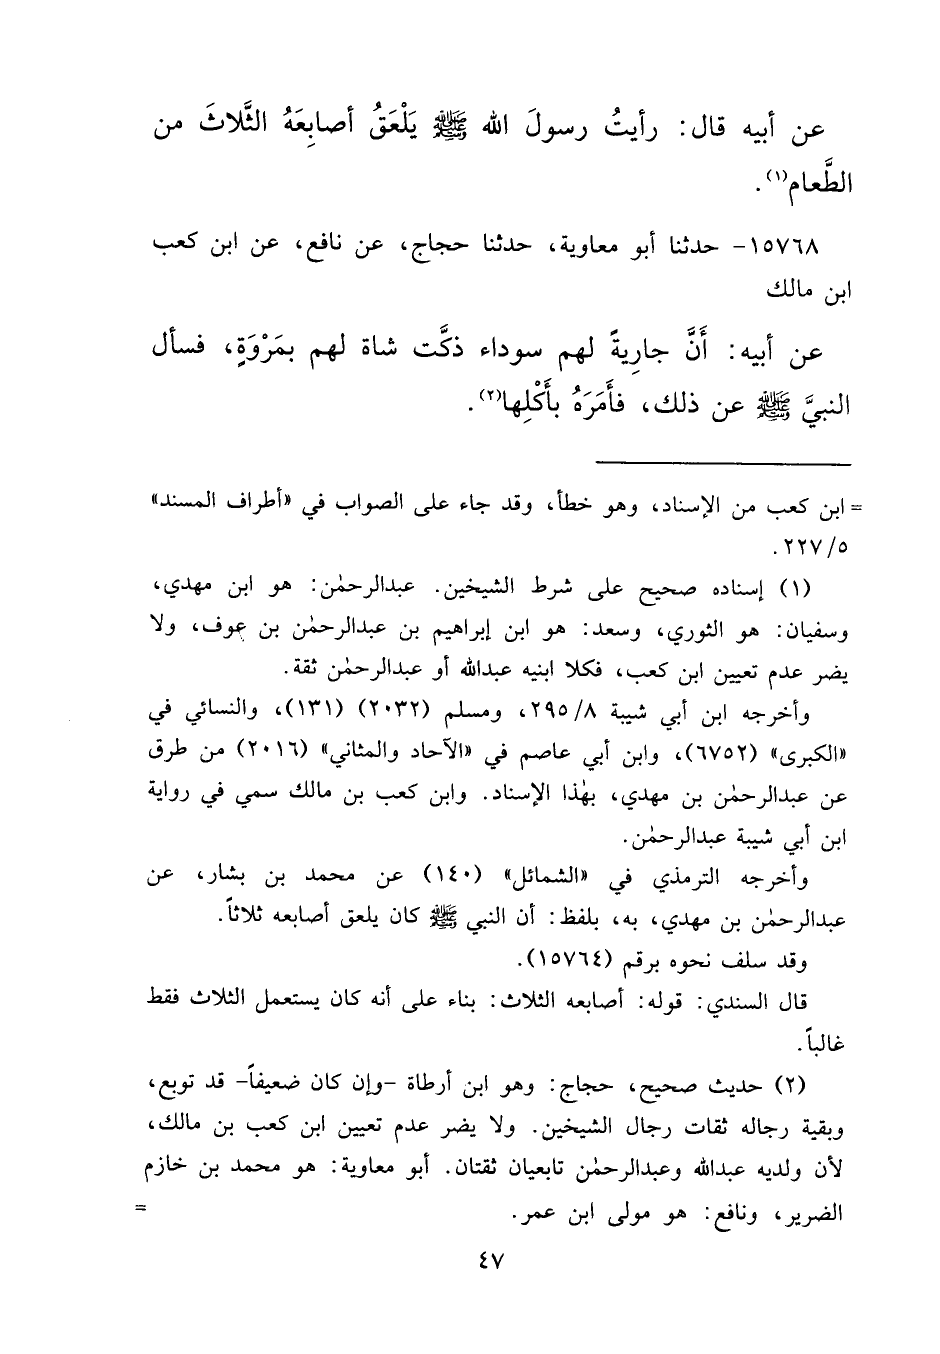 عن أبيه قال: رأيتُ رسولَ الله ﷺ يَلْعَقُ أصابِعَهُ الثَّلاثَ من
الطَّعام(١).
١٥٧٦٨- حدثنا أبو معاوية، حدثنا حجاج، عن نافع، عن ابن كعب
ابن مالك
عن أبيه: أَنَّ جارِيةً لهم سوداء ذكَّت شاة لهم بمَرْوَةٍ، فسأل
النبيَّ ﷺ عن ذلك، فأَمَرَهُ بأَكْلِها(٢).
= ابن كعب من الإسناد، وهو خطأ، وقد جاء على الصواب في «أطراف المسند»
٥/٢٢٧.
(١) إسناده صحيح على شرط الشيخين. عبدالرحمٰن: هو ابن مهدي،
وسفيان: هو الثوري، وسعد: هو ابن إبراهيم بن عبدالرحمٰن بن عوف، ولا
يضر عدم تعيين ابن كعب، فكلا ابنيه عبدالله أو عبدالرحمٰن ثقة.
وأخرجه ابن أبي شيبة ٢٩٥/٨، ومسلم (٢٠٣٢) (١٣١)، والنسائي في
«الكبرى» (٦٧٥٢)، وابن أبي عاصم في «الآحاد والمثاني» (٢٠١٦) من طرق
عن عبدالرحمٰن بن مهدي، بهٰذا الإسناد. وابن كعب بن مالك سمي في رواية
ابن أبي شيبة عبدالرحمٰن.
وأخرجه الترمذي في «الشمائل» (١٤٠) عن محمد بن بشار، عن
عبدالرحمٰن بن مهدي، به، بلفظ: أن النبي ﷺ كان يلعق أصابعه ثلاثاً.
وقد سلف نحوه برقم (١٥٧٦٤).
قال السندي: قوله: أصابعه الثلاث: بناء على أنه كان يستعمل الثلاث فقط
غالباً.
(٢) حديث صحيح، حجاج: وهو ابن أرطاة -وإن كان ضعيفاً- قد توبع،
وبقية رجاله ثقات رجال الشيخين. ولا يضر عدم تعيين ابن كعب بن مالك،
لأن ولديه عبدالله وعبدالرحمٰن تابعيان ثقتان. أبو معاوية: هو محمد بن خازم
الضرير، ونافع: هو مولى ابن عمر. =
٤٧